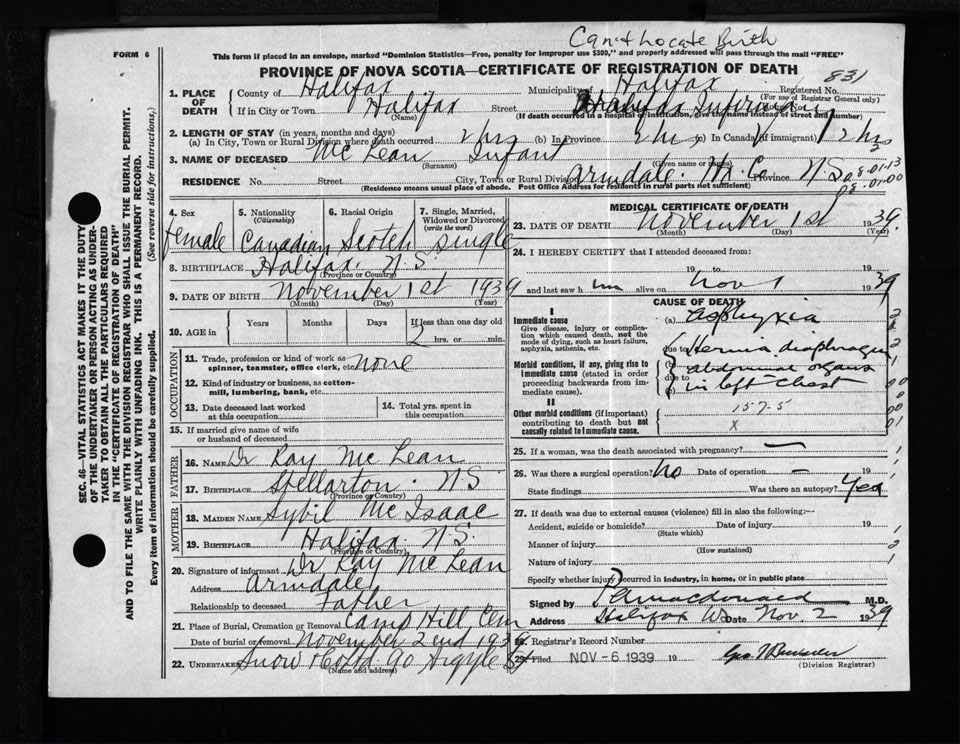 Can't Locate Birth
FORM 6
This form if placed in an envelope, marked "Dominion Statistics—Free, penalty for improper use $300," and properly addressed will pass through the mail "FREE"
PROVINCE OF NOVA SCOTIA—CERTIFICATE OF REGISTRATION OF DEATH
831
1. PLACE OF DEATH
County of Halifax Municipality of Halifax Registered No.
(For use of Registrar General only)
If in City or Town Halifax Street Halifax Infirmary
(Name)
(If death occurred in a hospital or institution, give the name instead of street and number)
2. LENGTH OF STAY (in years, months and days)
(a) In City, Town or Rural Division where death occurred 2 hrs (b) In Province 2 hrs (c) In Canada (if immigrant) 2 hrs
3. NAME OF DECEASED Mc Lean Infant
(Surname) (Given name or names)
RESIDENCE No. Street City, Town or Rural Division Armdale. Hx. Co Province N.S
(Residence means usual place of abode. Post Office Address for residents in rural parts not sufficient)
08-01-13
08-01-00
4. Sex
female
5. Nationality
(Citizenship)
Canadian
6. Racial Origin
Scotch
7. Single, Married, Widowed or Divorced
(write the word)
single
8. BIRTHPLACE Halifax. N.S
(Province or Country)
9. DATE OF BIRTH November 1st 1939
(Month) (Day) (Year)
10. AGE in
Years Months Days If less than one day old
2 hrs. or min.
OCCUPATION
11. Trade, profession or kind of work as spinner, teamster, office clerk, etc. none
12. Kind of industry or business, as cotton-mill, lumbering, bank, etc.
13. Date deceased last worked at this occupation
14. Total yrs. spent in this occupation
15. If married give name of wife or husband of deceased
FATHER
16. NAME Dr Ray Mc Lean
17. BIRTHPLACE Stellarton. N.S
(Province or Country)
MOTHER
18. MAIDEN NAME Sybil Mc Isaac
19. BIRTHPLACE Halifax N.S.
(Province or Country)
20. Signature of informant Dr. Ray Mc Lean
Address Armdale
Relationship to deceased Father
21. Place of Burial, Cremation or Removal Camp Hill, Cem
Date of burial or removal November 2nd 1939
22. UNDERTAKER Snow & Co Ltd 90 Argyle St
(Name and address)
MEDICAL CERTIFICATE OF DEATH
23. DATE OF DEATH November 1st 1939.
(Month) (Day) (Year)
24. I HEREBY CERTIFY that I attended deceased from:
19 to 19
and last saw h alive on Nov 1 1939
CAUSE OF DEATH
I
Immediate cause
Give disease, injury or complication which caused death, not the mode of dying, such as heart failure, asphyxia, asthenia, etc.
(a) asphyxia
due to Hernia diaphragm
Morbid conditions, if any, giving rise to immediate cause (stated in order proceeding backwards from immediate cause).
(b) abdominal organs
due to
(c) in left chest
II
Other morbid conditions (if important) contributing to death but not causally related to immediate cause.
157-5
x
25. If a woman, was the death associated with pregnancy? —
26. Was there a surgical operation? No Date of operation – 19
State findings Was there an autopsy? Yes
27. If death was due to external causes (violence) fill in also the following:—
Accident, suicide or homicide? Date of injury 19
(State which)
Manner of injury
(How sustained)
Nature of injury
Specify whether injury occurred in industry, in home, or in public place
Signed by Macdonald M.D.
Address Halifax Date Nov. 2 1939
28. Registrar's Record Number
29. Filed NOV - 6 1939 19
(Division Registrar)
SEC. 46—VITAL STATISTICS ACT MAKES IT THE DUTY
OF THE UNDERTAKER OR PERSON ACTING AS UNDER-
TAKER TO OBTAIN ALL THE PARTICULARS REQUIRED
IN THE "CERTIFICATE OF REGISTRATION OF DEATH"
AND TO FILE THE SAME WITH THE DIVISION REGISTRAR WHO SHALL ISSUE THE BURIAL PERMIT.
WRITE PLAINLY WITH UNFADING INK. THIS IS A PERMANENT RECORD.
Every item of information should be carefully supplied. (See reverse side for instructions.)